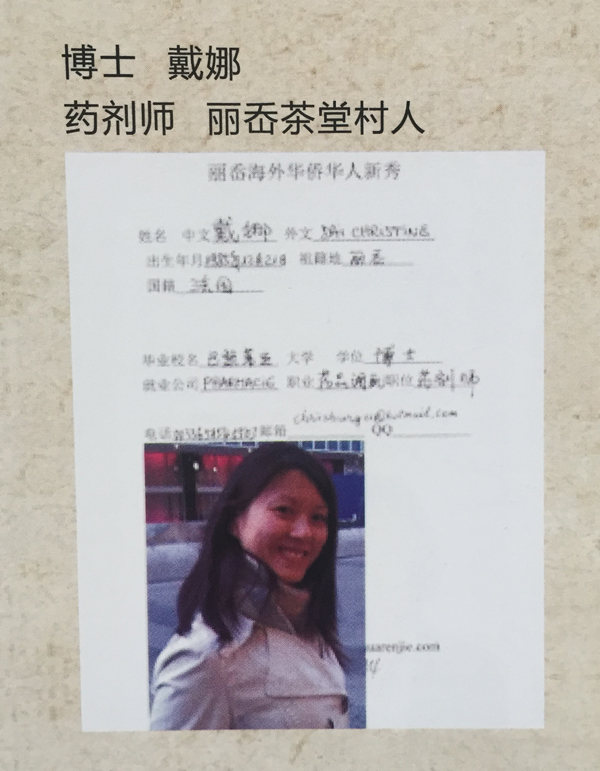 博士 戴娜
药剂师 丽岙茶堂村人
丽岙海外华侨华人新秀
姓名 中文 戴娜 外文 DAI CHRISTINE
出生年月 祖籍地 丽岙
国籍 法国
毕业校名 巴黎第五 大学 学位 博士
就业公司 PHARMACIE 职业 药品调配 职位 药剂师
电话 邮箱 QQ